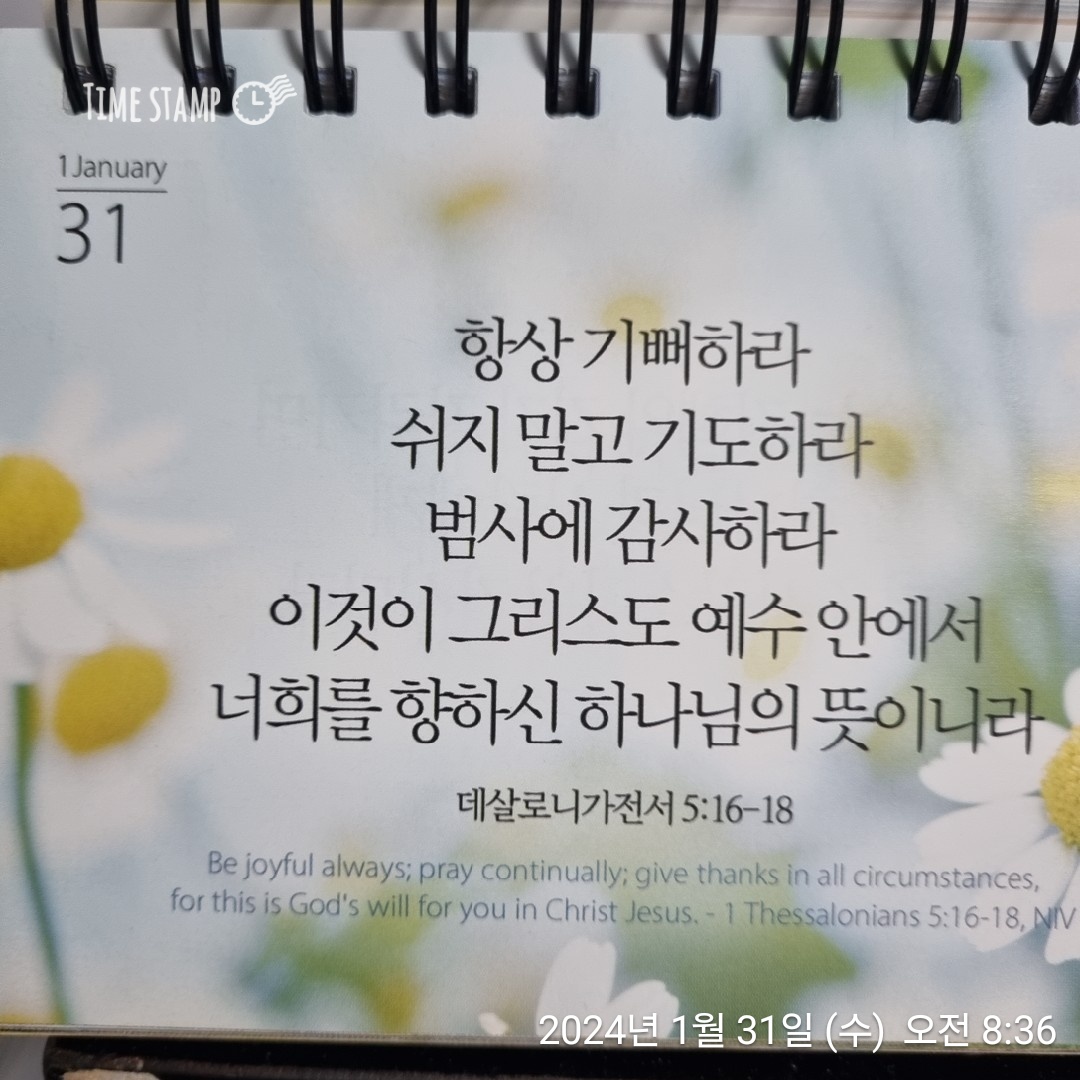 TIME STAMP
1 January
31
항상 기뻐하라
쉬지 말고 기도하라
범사에 감사하라
이것이 그리스도 예수 안에서
너희를 향하신 하나님의 뜻이니라
데살로니가전서 5:16-18
Be joyful always; pray continually; give thanks in all circumstances,
for this is God's will for you in Christ Jesus. - 1 Thessalonians 5:16-18, NIV
2024년 1월 31일 (수) 오전 8:36